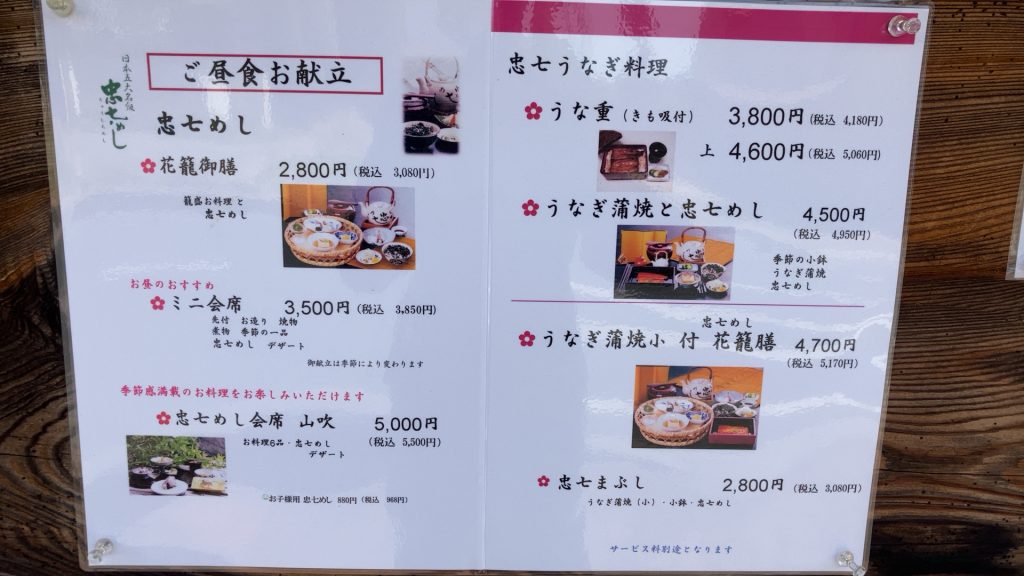 日本五大名飯
忠七めし
ご昼食お献立
忠七めし
花籠御膳 2,800円(税込 3,080円)
籠盛お料理と
忠七めし
お昼のおすすめ
ミニ会席 3,500円(税込 3,850円)
先付 お造り 焼物
煮物 季節の一品
忠七めし デザート
御献立は季節により変わります
季節感満載のお料理をお楽しみいただけます
忠七めし会席 山吹 5,000円
(税込 5,500円)
お料理6品・忠七めし
デザート
お子様用 忠七めし 880円(税込 968円)
忠七うなぎ料理
うな重(きも吸付) 3,800円(税込 4,180円)
上 4,600円(税込 5,060円)
うなぎ蒲焼と忠七めし 4,500円
(税込 4,950円)
季節の小鉢
うなぎ蒲焼
忠七めし
忠七めし
うなぎ蒲焼小 付 花籠膳 4,700円
(税込 5,170円)
忠七まぶし 2,800円(税込 3,080円)
うなぎ蒲焼(小)・小鉢・忠七めし
サービス料別途となります